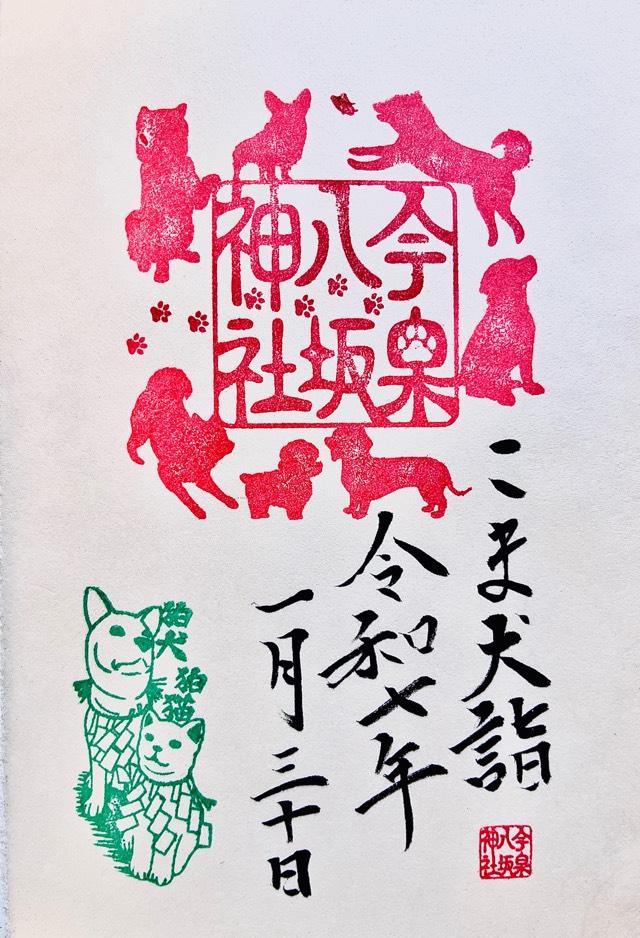 今泉
八坂
神社
こま犬詣
令和七年
一月三十日
狛犬
狛猫
今泉
八坂
神社